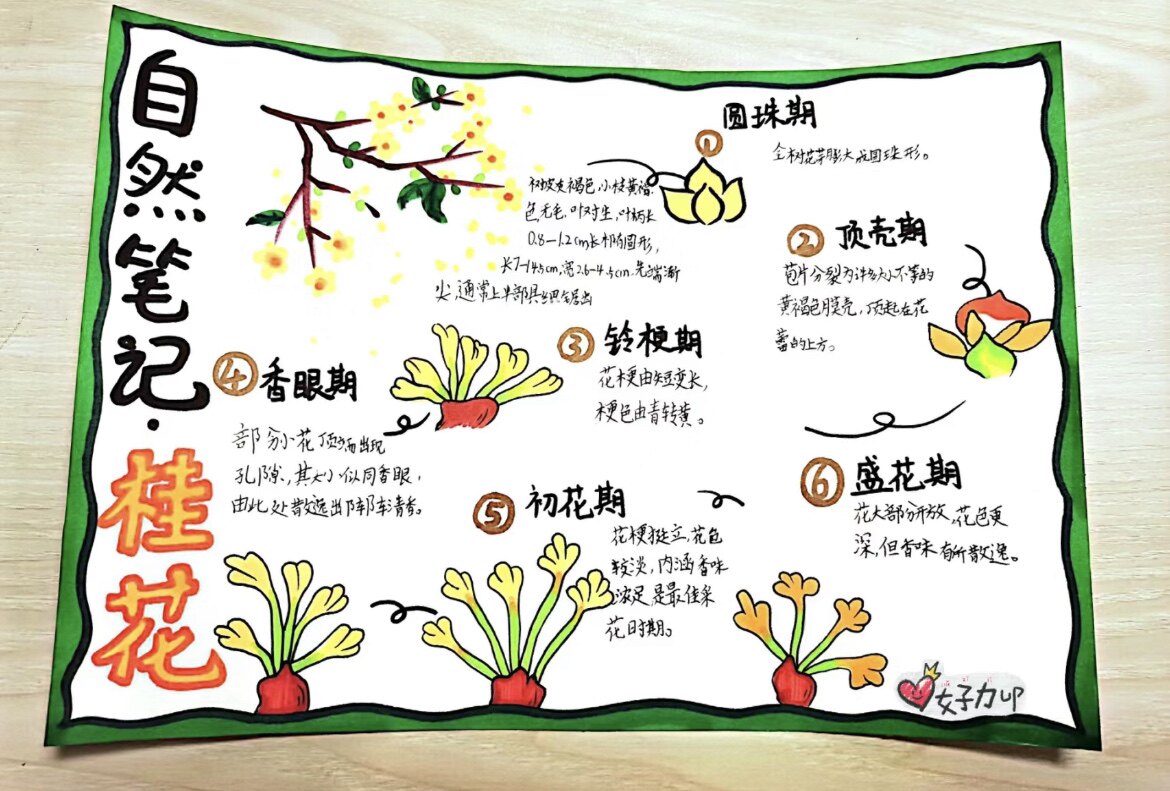 自然笔记·桂花
树皮灰褐色,小枝黄褐
色无毛,叶对生,叶柄长
0.8—1.2cm长椭圆形,
长7—14.5cm,宽2.6—4.5cm.先端渐
尖,通常上半部具细锯齿
① 圆珠期
全树花芽膨大成圆珠形。
② 顶壳期
苞片分裂为许多大小不等的
黄褐色膜壳,顶起在花
蕾的上方。
③ 铃梗期
花梗由短变长,
梗色由青转黄。
④ 香眼期
部分小花顶端出现
孔隙,其大小似同香眼,
由此处散逸出阵阵清香。
⑤ 初花期
花梗挺立,花色
较淡,内涵香味
浓足,是最佳采
花时期。
⑥ 盛花期
花大部分开放,花色更
深,但香味有所散逸。
女子力up